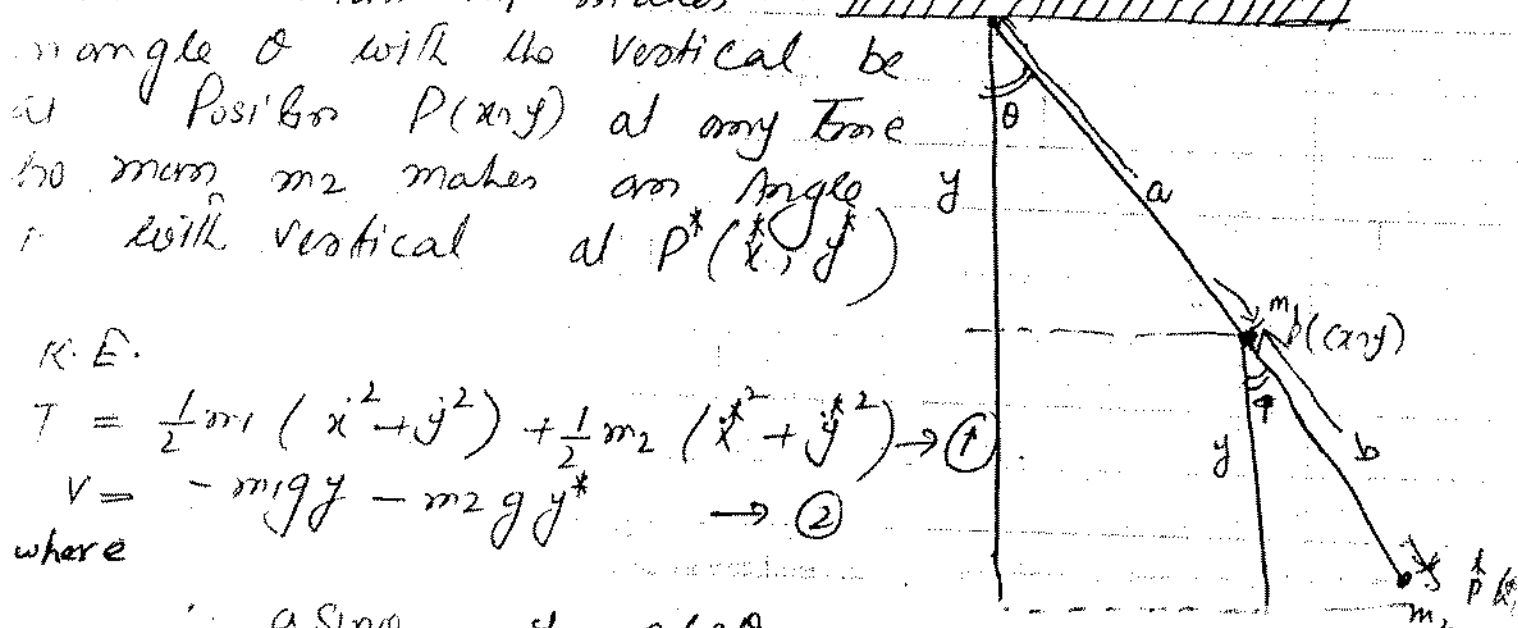 angle θ with the vertical be
at Position P(x,y) at any Time
mass m2 makes an Angle
with vertical at P*(x*, y*)
K.E.
T = 1/2 m1 (ẋ² + ẏ²) + 1/2 m2 (ẋ*² + ẏ*²) → ①
V = - m1gy - m2gy* → ②
where
a sinθ
θ
y
a
m1
P(x,y)
φ
y
b
P*
m2